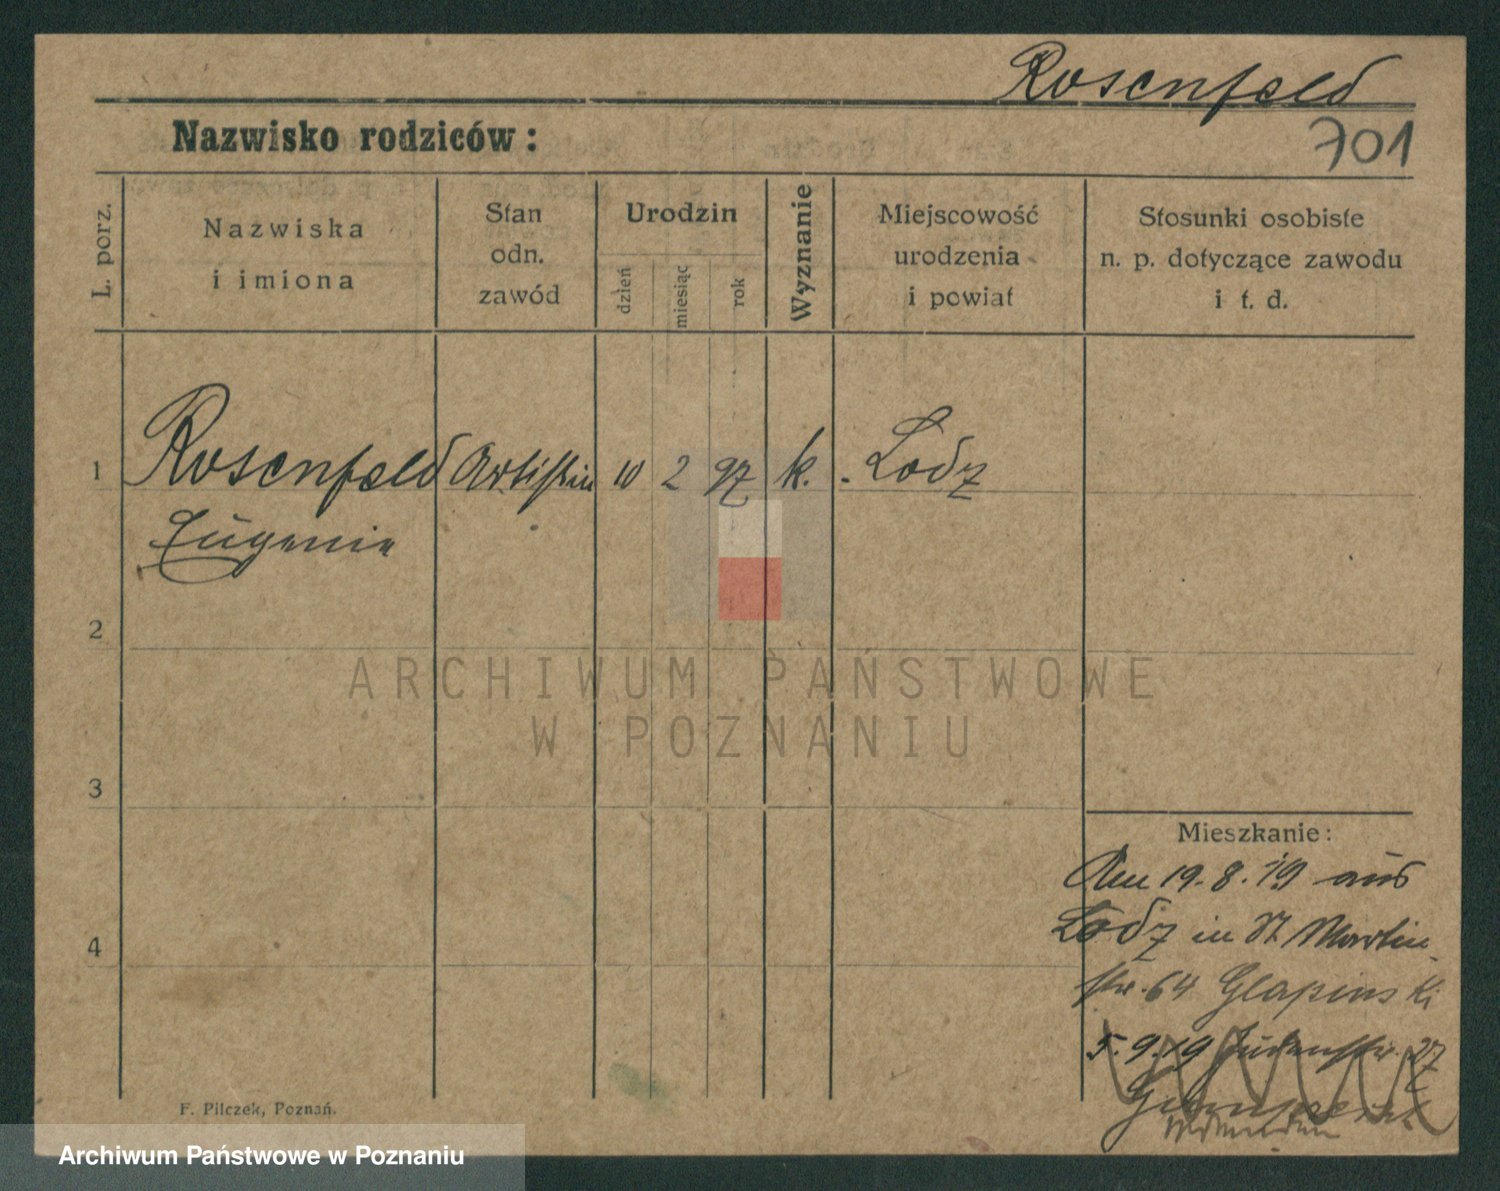 Rosenfeld
Nazwisko rodziców:
701
L. porz.
Nazwiska
i imiona
Stan
odn.
zawód
Urodzin
dzień
miesiąc
rok
Wyznanie
Miejscowość
urodzenia
i powiat
Stosunki osobiste
n. p. dotyczące zawodu
i t. d.
1 Rosenfeld Artistin 10 2 97 k. Lodz
Eugenie
2
ARCHIWUM PAŃSTWOWE
W POZNANIU
3
4
Mieszkanie:
Am 19.8.19 aus
Lodz in St. Martin
str. 64 Glapinski
5.9.19 Judenstr. 27
F. Pilczek, Poznań.
Archiwum Państwowe w Poznaniu